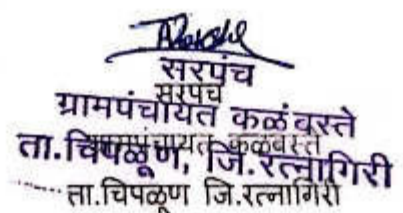 सरपंच
सरपंच
ग्रामपंचायत कळंबस्ते
ग्रामपंचायत कळंबस्ते
ता.चिपळूण, जि.रत्नागिरी
ता.चिपळूण जि.रत्नागिरी